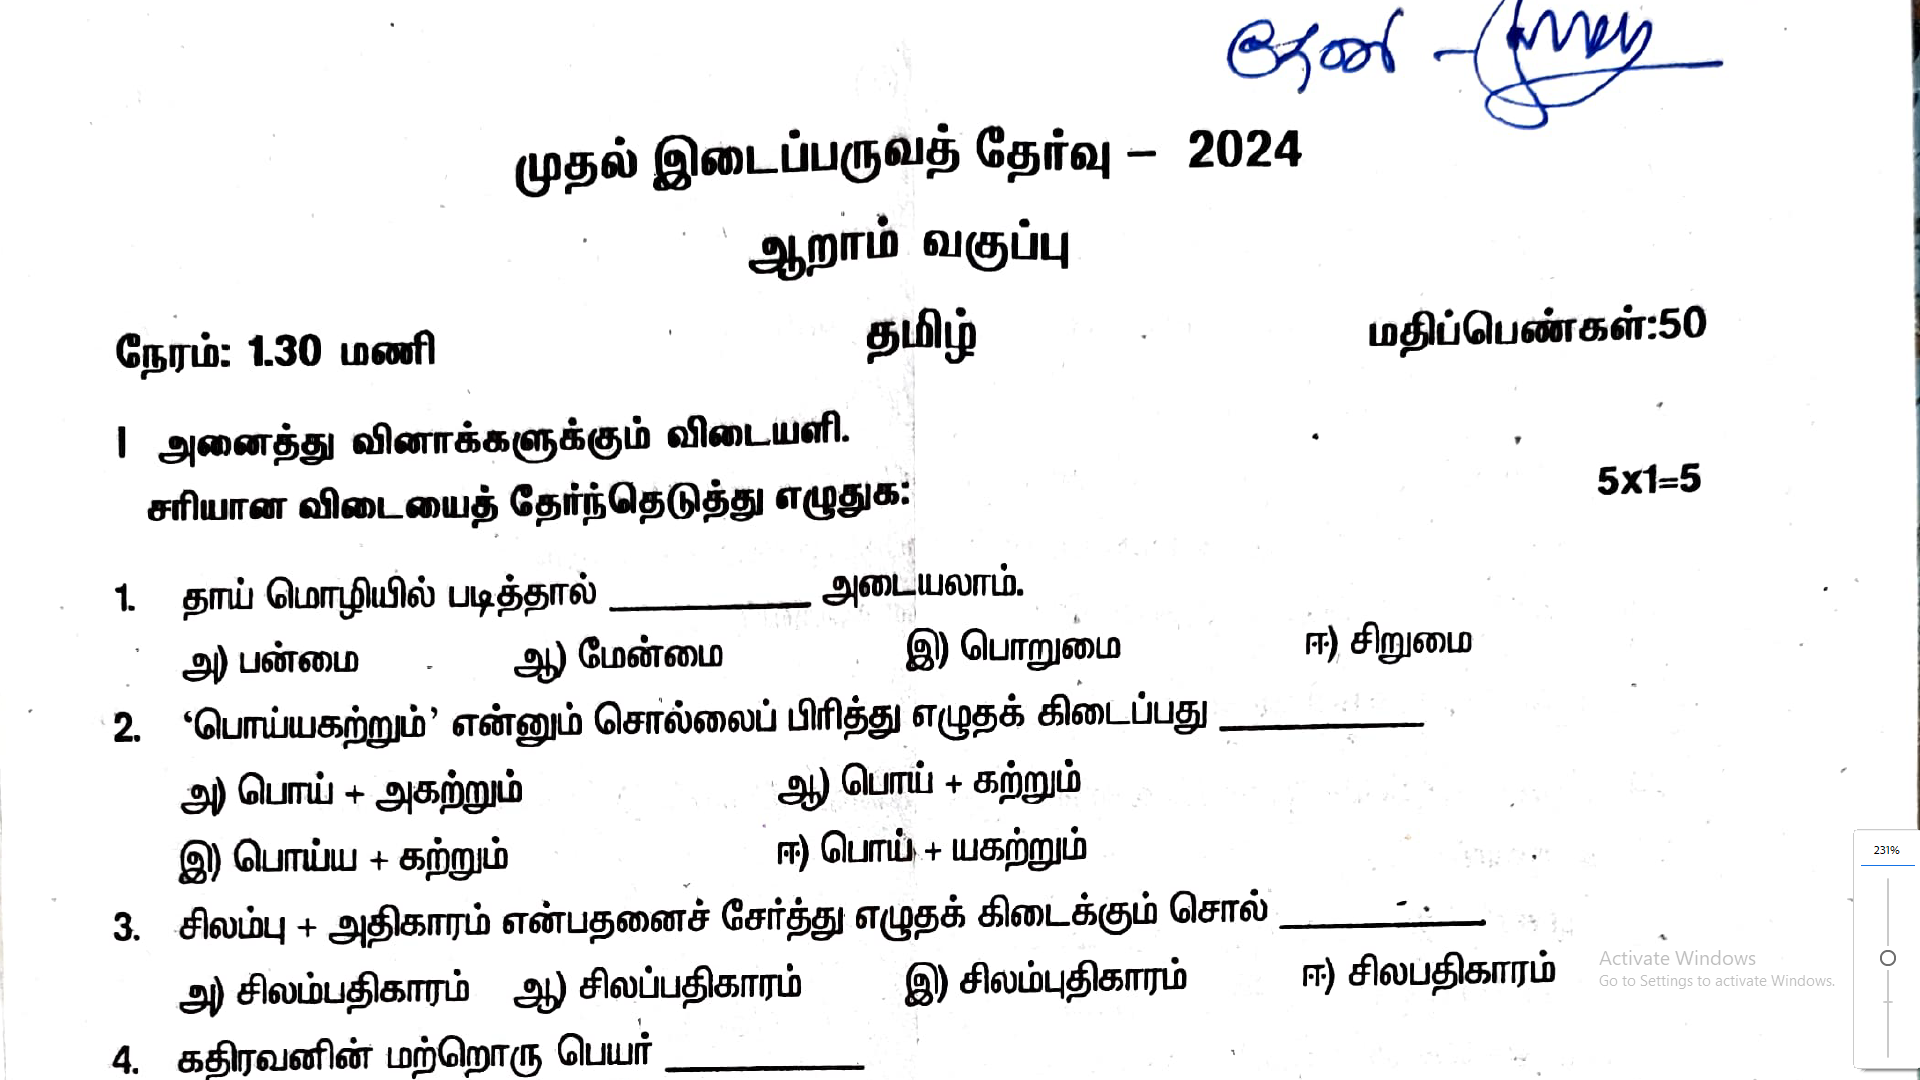 தேனி -
முதல் இடைப்பருவத் தேர்வு – 2024
ஆறாம் வகுப்பு
நேரம்: 1.30 மணி தமிழ் மதிப்பெண்கள்:50
I அனைத்து வினாக்களுக்கும் விடையளி.
சரியான விடையைத் தேர்ந்தெடுத்து எழுதுக: 5x1=5
1. தாய் மொழியில் படித்தால் __________ அடையலாம்.
அ) பன்மை ஆ) மேன்மை இ) பொறுமை ஈ) சிறுமை
2. ‘பொய்யகற்றும்’ என்னும் சொல்லைப் பிரித்து எழுதக் கிடைப்பது __________
அ) பொய் + அகற்றும் ஆ) பொய் + கற்றும்
இ) பொய்ய + கற்றும் ஈ) பொய் + யகற்றும்
3. சிலம்பு + அதிகாரம் என்பதனைச் சேர்த்து எழுதக் கிடைக்கும் சொல் __________
அ) சிலம்பதிகாரம் ஆ) சிலப்பதிகாரம் இ) சிலம்புதிகாரம் ஈ) சிலபதிகாரம்
4. கதிரவனின் மற்றொரு பெயர் __________
231%
Activate Windows
Go to Settings to activate Windows.